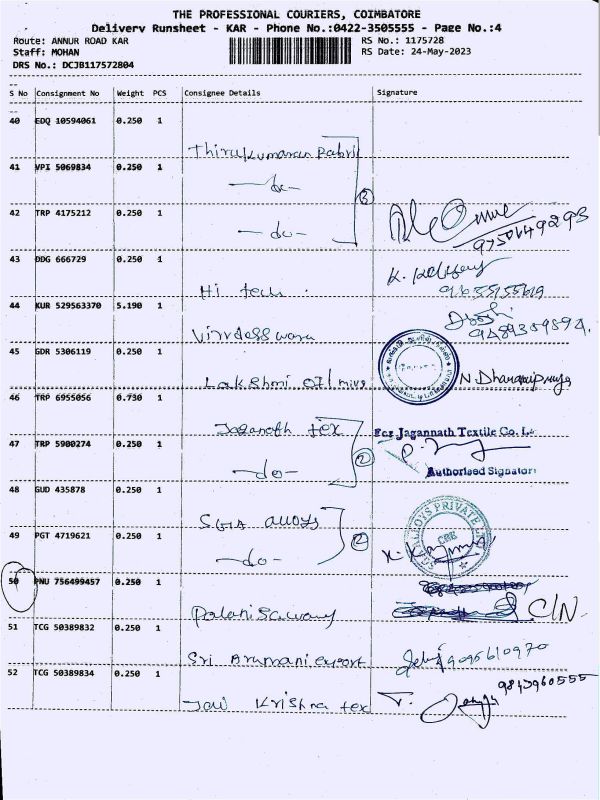 THE PROFESSIONAL COURIERS, COIMBATORE
Delivery Runsheet - KAR - Phone No.:0422-3505555 - Page No.:4
Route: ANNUR ROAD KAR
RS No.: 1175728
Staff: MOHAN
RS Date: 24-May-2023
DRS No.: DCJB117572804
S No Consignment No Weight PCS Consignee Details Signature
40 EDQ 10594061 0.250 1
Thirukumaran Fabric
41 VPI 5069834 0.250 1
-do-
3
42 TRP 4175212 0.250 1
-do-
9750149293
43 DDG 666729 0.250 1
Hi tech
K.
44 KUR 529563370 5.190 1
45 GDR 5306119 0.250 1
Lakshmi Oil mills
N. Dharanipriya
46 TRP 6955056 0.730 1
Jaganath tex
For Jagannath Textile Co. L
47 TRP 5900274 0.250 1
-do-
2
Authorised Signatory
48 GUD 435878 0.250 1
SGA alloys
ALLOYS PRIVATE
CBE
49 PGT 4719621 0.250 1
-do-
2
50 PNU 756499457 0.250 1
Palanisamy
C/N.
51 TCG 50389832 0.250 1
Sri export
9095610970
52 TCG 50389834 0.250 1
Jai Krishna tex
9843960555